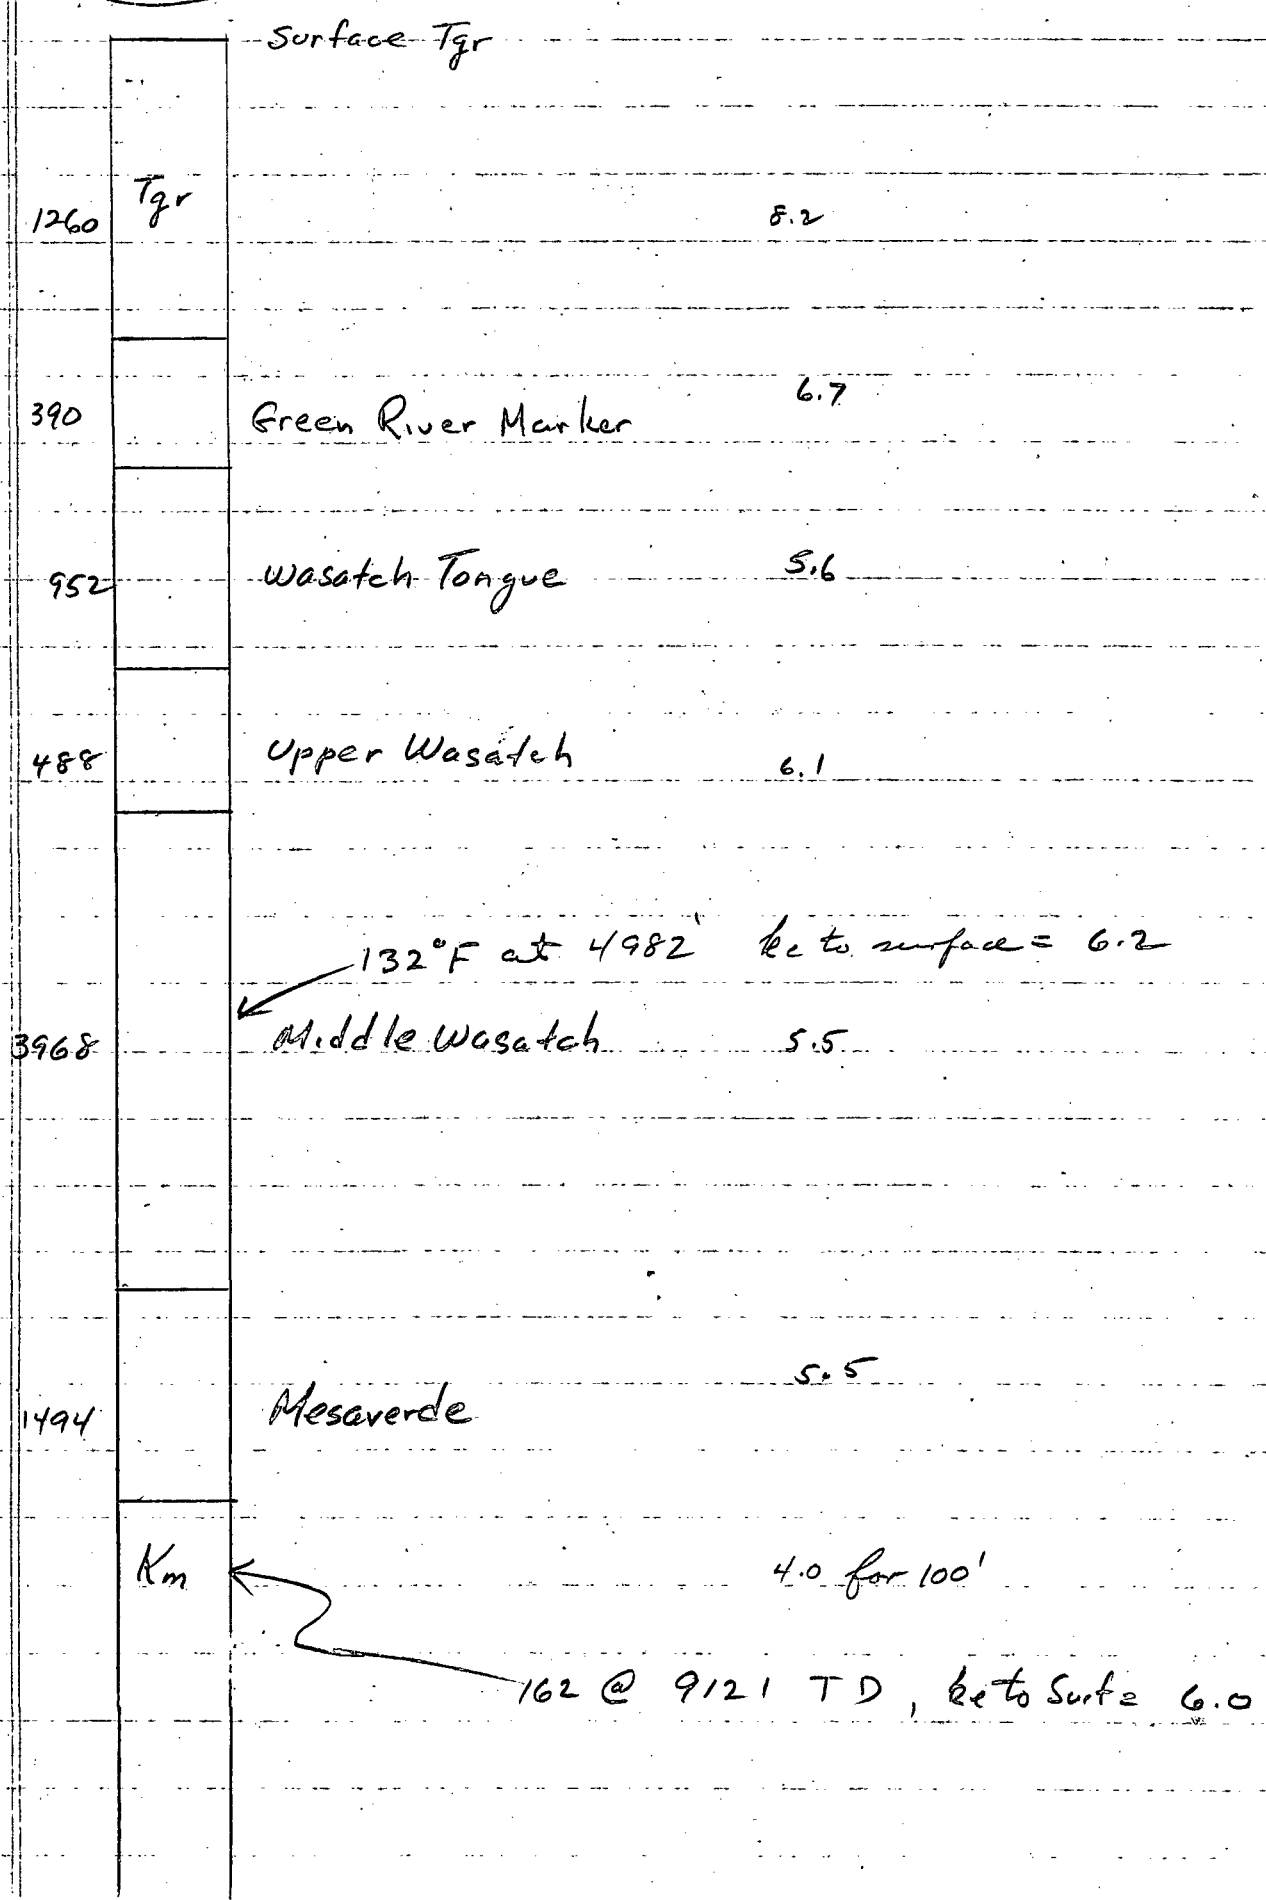 Surface Tgr
1260 Tgr 8.2
390 Green River Marker 6.7
952 Wasatch Tongue 5.6
488 Upper Wasatch 6.1
132°F at 4982' ke to surface = 6.2
3968 Middle Wasatch 5.5
1494 Mesaverde 5.5
Km 4.0 for 100'
162 @ 9121 TD, ke to Surf = 6.0